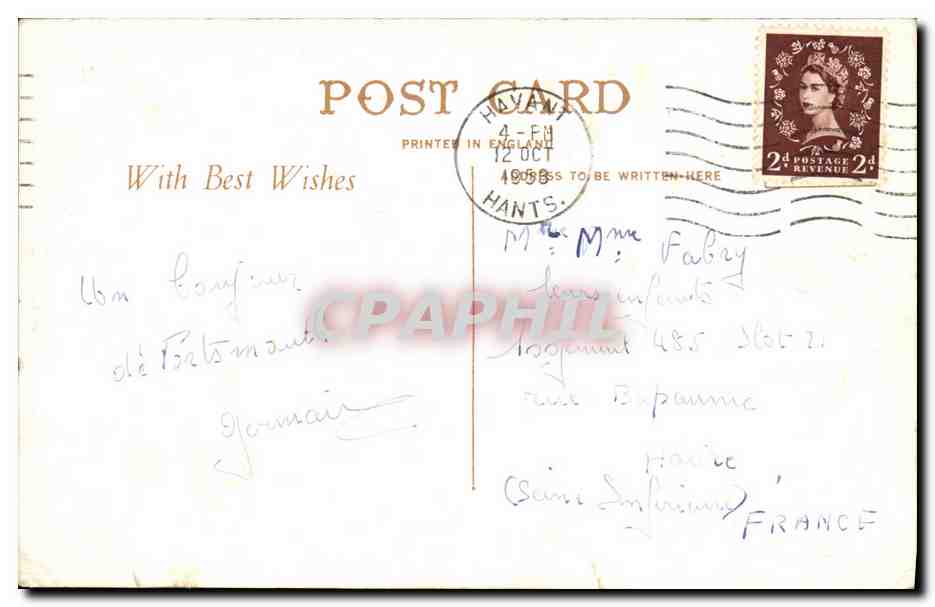 POST CARD
PRINTED IN ENGLAND
With Best Wishes
ADDRESS TO BE WRITTEN HERE
HAVANT
4 - PM
12 OCT
HANTS.
2d POSTAGE REVENUE 2d
Un bonjour
de Portsmouth
Germain
Mr et Mme Fabry
leurs enfants
logement 485 Ilot 2.
rue Bapaume
Havre
(Seine Inférieure)
FRANCE
CPAPHIL